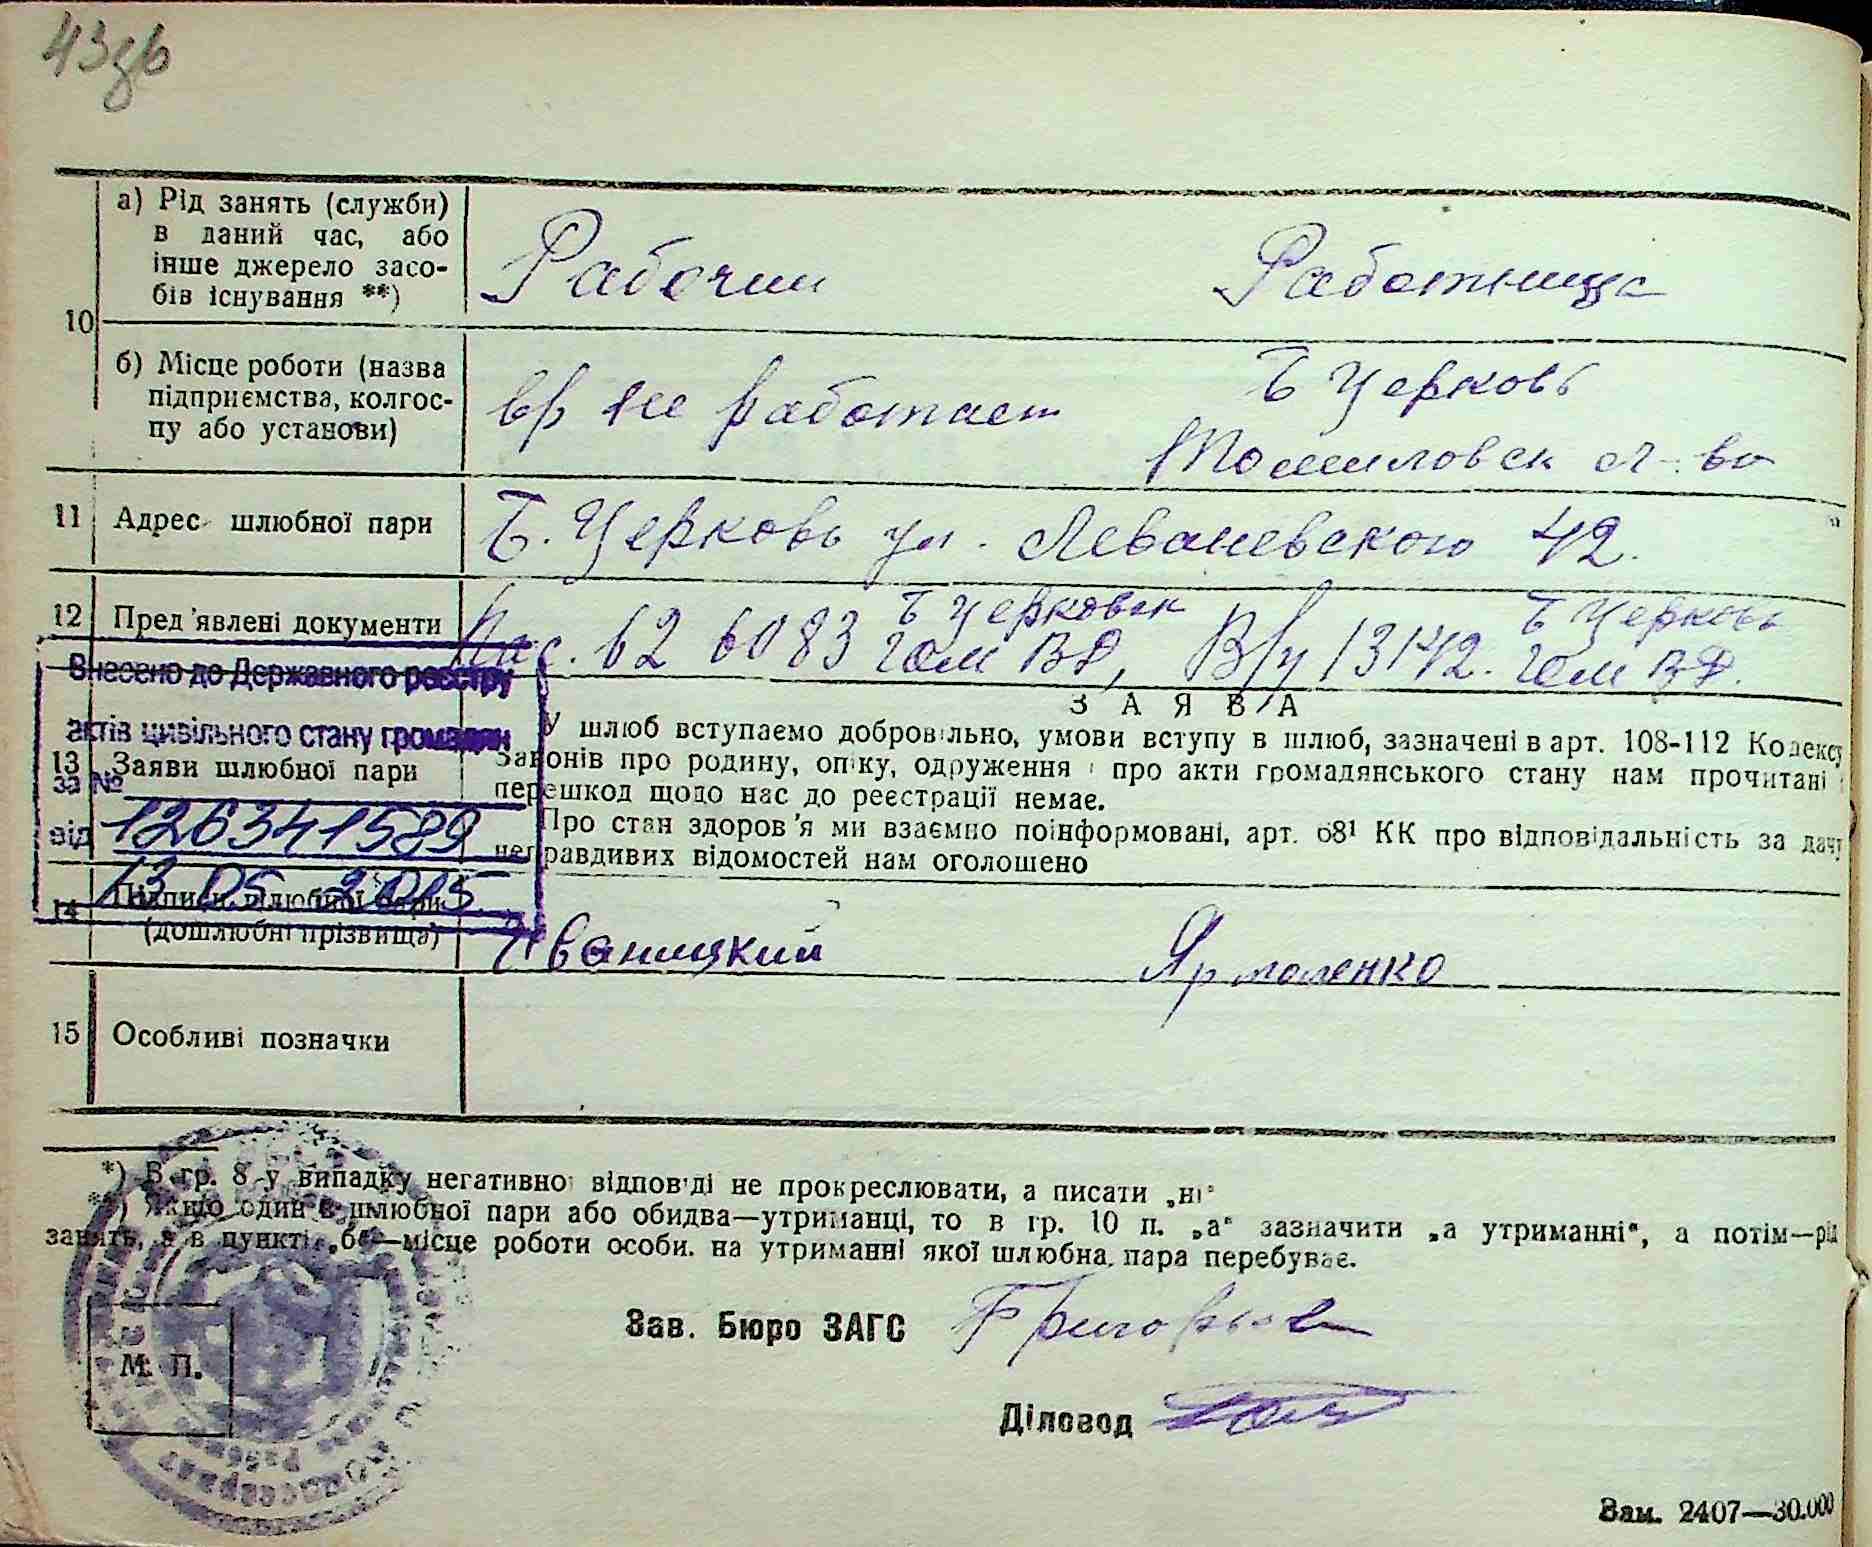 43зв
а) Рід занять (служби)
в даний час, або
інше джерело засо-
бів існування **)
Рабочий Работница
10
б) Місце роботи (назва
підприємства, колгос-
пу або установи)
вр не работает
Б Церковь
Томиловск л-во
11 Адрес шлюбної пари
Б. Церковь ул. Леваневского 42.
12 Пред'явлені документи
Пас. 62 6083 Б Церковск ГОМ ВД, В/у 13142. Б Церковь ГОМ ВД.
Внесено до Державного реєстру
актів цивільного стану громадян
за №
від 126341589
13 05 2015
З А Я В А
13 Заяви шлюбної пари
У шлюб вступаємо добровільно, умови вступу в шлюб, зазначені в арт. 108-112 Кодексу
Законів про родину, опіку, одруження і про акти громадянського стану нам прочитані і
перешкод щодо нас до реєстрації немає.
Про стан здоров'я ми взаємно поінформовані, арт. 68¹ КК про відповідальність за дачу
неправдивих відомостей нам оголошено
14 Підписи шлюбної пари
(дошлюбні прізвища)
Иваницкий Ярмоленко
15 Особливі позначки
*) В гр. 8-у випадку негативної відповіді не прокреслювати, а писати „ні“
**) Якщо один з шлюбної пари або обидва—утриманці, то в гр. 10 п. „а“ зазначити „а утриманні“, а потім—рід
занять, а в пункті „б“—місце роботи особи. на утриманні якої шлюбна, пара перебуває.
Зав. Бюро ЗАГС
М. П.
Діловод
Зам. 2407—30.000